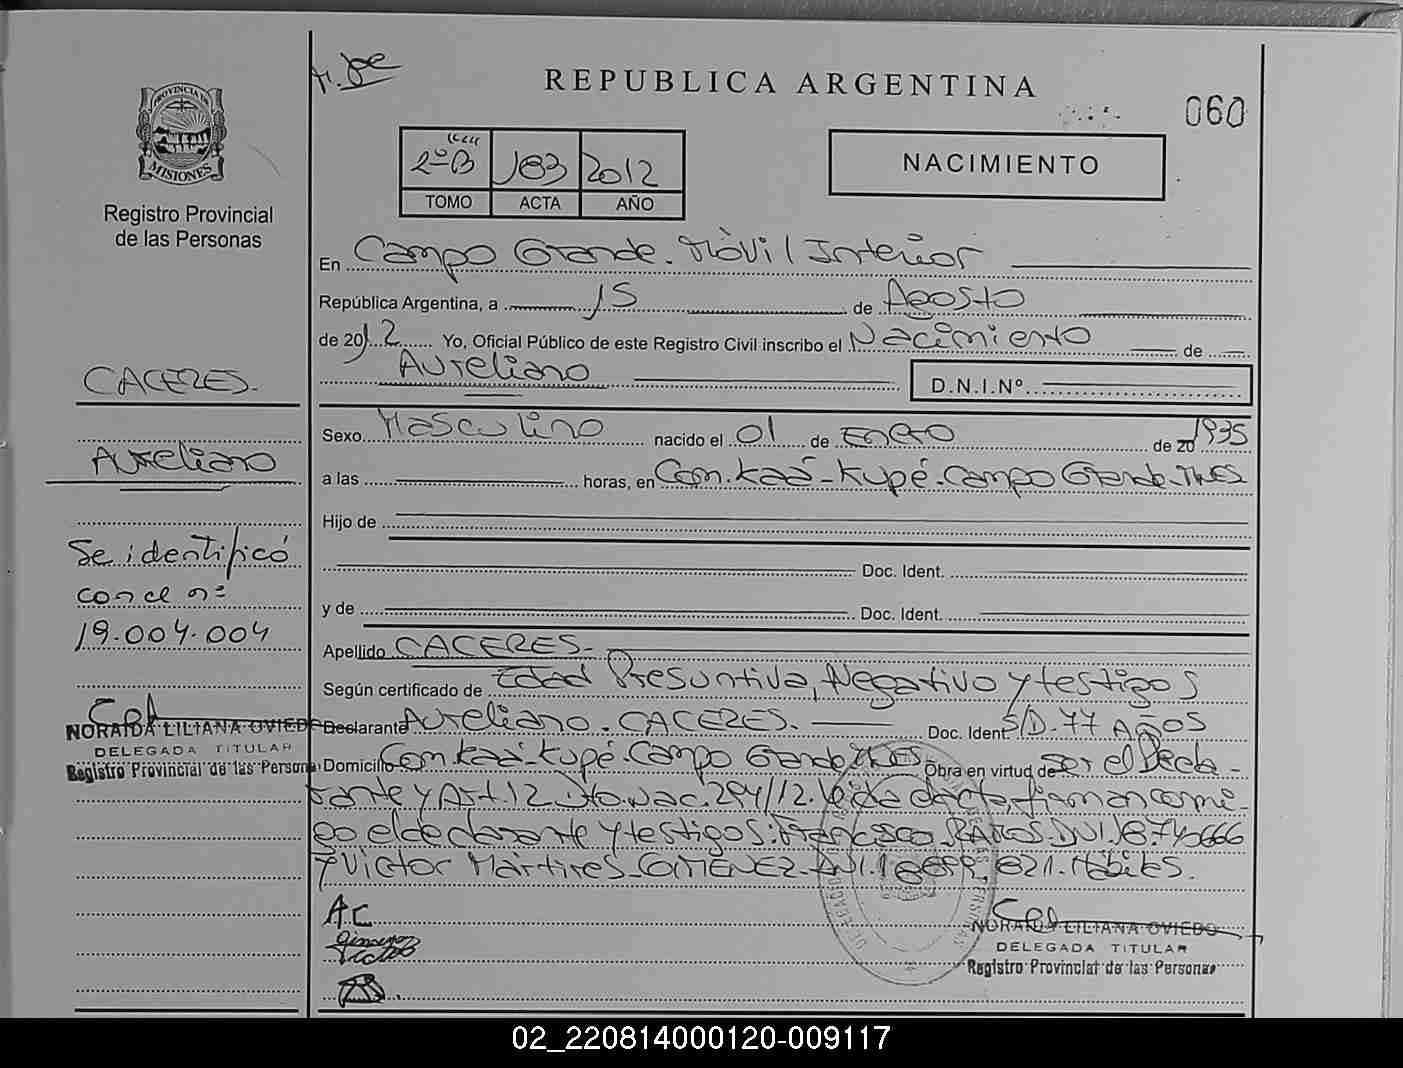 REPUBLICA ARGENTINA
060
PROVINCIA DE
MISIONES
Registro Provincial
de las Personas
2º B 183 2012
TOMO ACTA AÑO
NACIMIENTO
En Campo Grande. Móvil Interior
República Argentina, a 15 de Agosto
de 2012 Yo, Oficial Público de este Registro Civil inscribo el Nacimiento de
Aureliano D.N.I.Nº
CACERES.
Aureliano
Se identificó
con el nº
19.004.004
NORAIDA LILIANA OVIEDO
DELEGADA TITULAR
Registro Provincial de las Personas
Sexo Masculino nacido el 01 de Enero de 20 1935
a las horas, en Com. Kaá-Kupé. Campo Grande. Mnes
Hijo de
Doc. Ident.
y de Doc. Ident.
Apellido CACERES-
Según certificado de Edad Presuntiva, Negativo y testigos
Declarante Aureliano. CACERES. Doc. Ident S/D. 77 AÑOS
Domicilio Com. Kaá-Kupé. Campo Grande Mnes Obra en virtud de Ser el Decla-
rante y Art. 12 Dto. Nac. 294/12. Leída el acta firman conmi-
go el declarante y testigos: Francisco RAMOS DNI.
y Victor Martires GIMENEZ DNI. Hábiles.
AC
Gimenez
Victor
NORAIDA LILIANA OVIEDO
DELEGADA TITULAR
Registro Provincial de las Personas
02_220814000120-009117